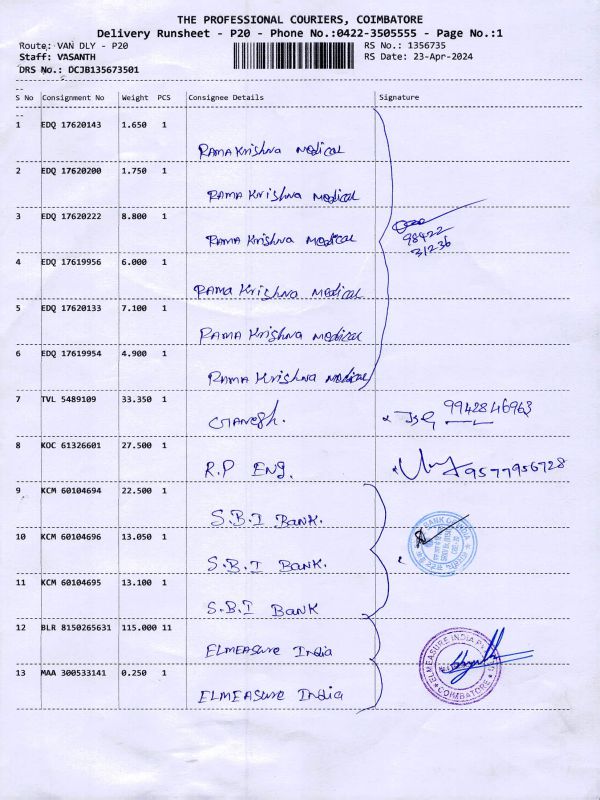 THE PROFESSIONAL COURIERS, COIMBATORE
Delivery Runsheet - P20 - Phone No.:0422-3505555 - Page No.:1
Route: VAN DLY - P20 RS No.: 1356735
Staff: VASANTH RS Date: 23-Apr-2024
DRS No.: DCJB135673501
S No Consignment No Weight PCS Consignee Details Signature
1 EDQ 17620143 1.650 1
RAMA Krishna Medical
2 EDQ 17620200 1.750 1
RAMA Krishna Medical
3 EDQ 17620222 8.800 1
RAMA Krishna Medical
98422
31236
4 EDQ 17619956 6.000 1
RAMA Krishna Medical
5 EDQ 17620133 7.100 1
RAMA Krishna Medical
6 EDQ 17619954 4.900 1
RAMA Krishna Medical
7 TVL 5489109 33.350 1
GANesh. 9942846963
8 KOC 61326601 27.500 1
R.P ENG. 9577956728
9 KCM 60104694 22.500 1
S.B.I BANK.
10 KCM 60104696 13.050 1
S.B.I BANK.
11 KCM 60104695 13.100 1
S.B.I BANK
12 BLR 8150265631 115.000 11
ELMEASURE India
13 MAA 300533141 0.250 1
ELMEASURE India
ELMEASURE INDIA
COIMBATORE